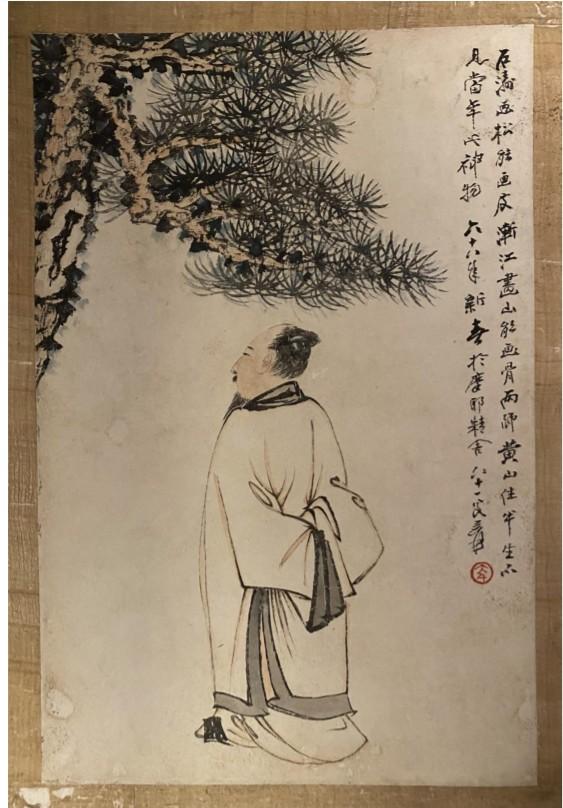 石濤画松能画皮漸江畫山能画骨両師黄山住半生不
見當年此神物 六十八年新春於摩耶精舍 八十一叟爰
大千